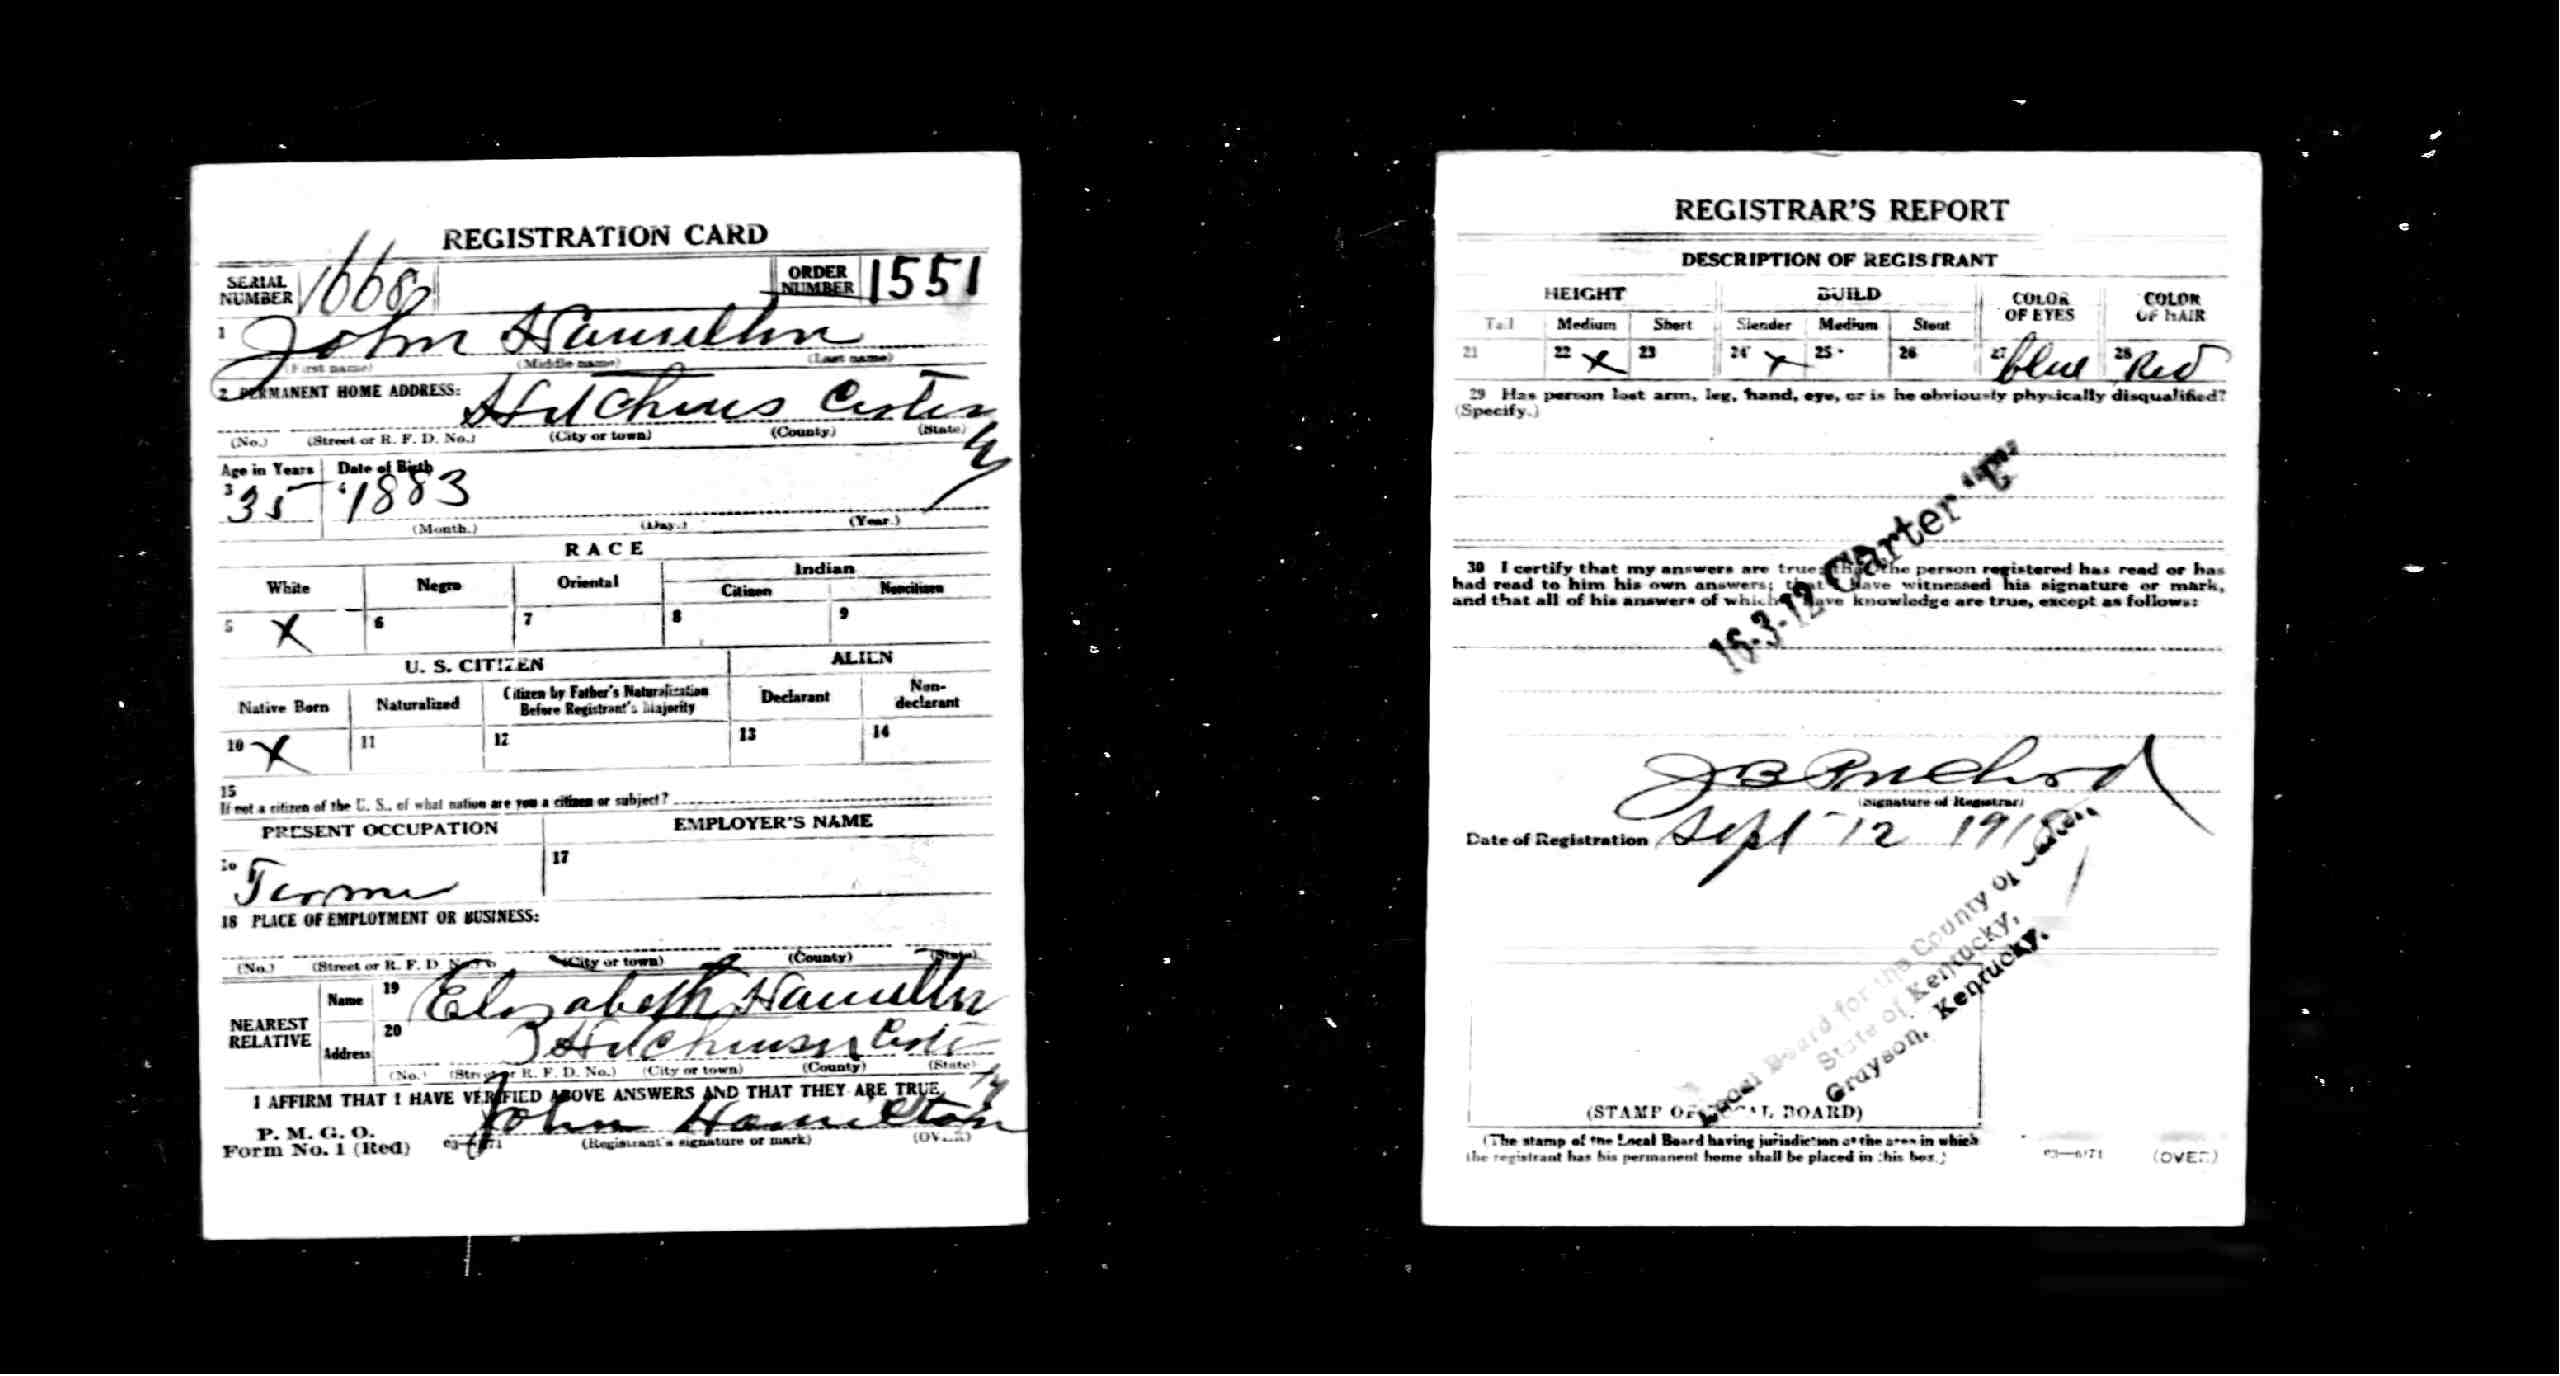 REGISTRATION CARD
SERIAL NUMBER 1668 ORDER NUMBER 1551
1 John Hamilton
(First name) (Middle name) (Last name)
2 PERMANENT HOME ADDRESS: Hutchins Carter Ky
(No.) (Street or R. F. D. No.) (City or town) (County) (State)
Age in Years Date of Birth
3 35 4 1883
(Month.) (Day.) (Year.)
RACE
White Negro Oriental Indian
Citizen Noncitizen
5 X 6 7 8 9
U. S. CITIZEN ALIEN
Native Born Naturalized Citizen by Father's Naturalization Before Registrant's Majority Declarant Non-declarant
10 X 11 12 13 14
15
If not a citizen of the U. S., of what nation are you a citizen or subject?
PRESENT OCCUPATION EMPLOYER'S NAME
16 Farmer 17
18 PLACE OF EMPLOYMENT OR BUSINESS:
(No.) (Street or R. F. D. No.) (City or town) (County) (State)
NEAREST RELATIVE Name 19 Elizabeth Hamilton
Address 20 Carter Ky
(No.) (Street or R. F. D. No.) (City or town) (County) (State)
I AFFIRM THAT I HAVE VERIFIED ABOVE ANSWERS AND THAT THEY ARE TRUE
P. M. G. O.
Form No. 1 (Red) 03—6171 John Hamilton
(Registrant's signature or mark) (OVER)
REGISTRAR'S REPORT
DESCRIPTION OF REGISTRANT
HEIGHT BUILD COLOR OF EYES COLOR OF HAIR
Tall Medium Short Slender Medium Stout
21 22 X 23 24 X 25 26 27 blue 28 Red
29 Has person lost arm, leg, hand, eye, or is he obviously physically disqualified?
(Specify.)
16-3-12 Carter "C"
30 I certify that my answers are true; that the person registered has read or has
had read to him his own answers; that I have witnessed his signature or mark,
and that all of his answers of which I have knowledge are true, except as follows:
J B Prichard
(Signature of Registrar)
Date of Registration Sept 12 1918
Local Board for the County of Carter,
State of Kentucky,
Grayson, Kentucky.
(STAMP OF LOCAL BOARD)
(The stamp of the Local Board having jurisdiction of the area in which
the registrant has his permanent home shall be placed in this box.)
03—6171 (OVER)